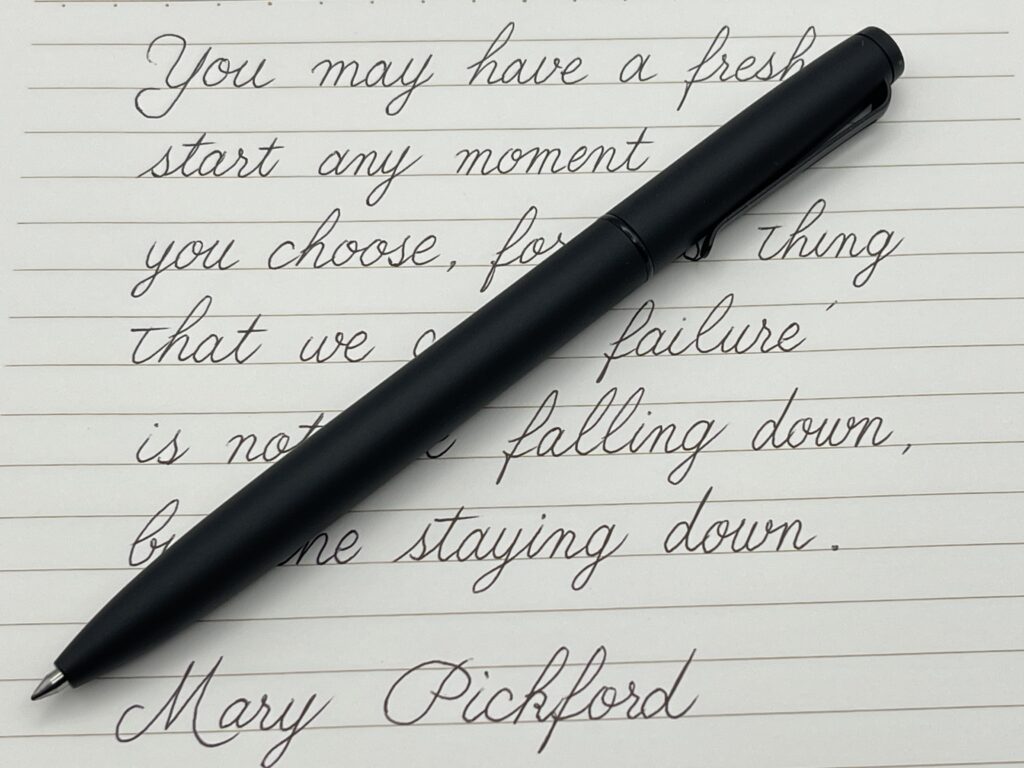 You may have a fresh
start any moment
you choose, thing
that we failure'
is falling down,
staying down.
Mary Pickford